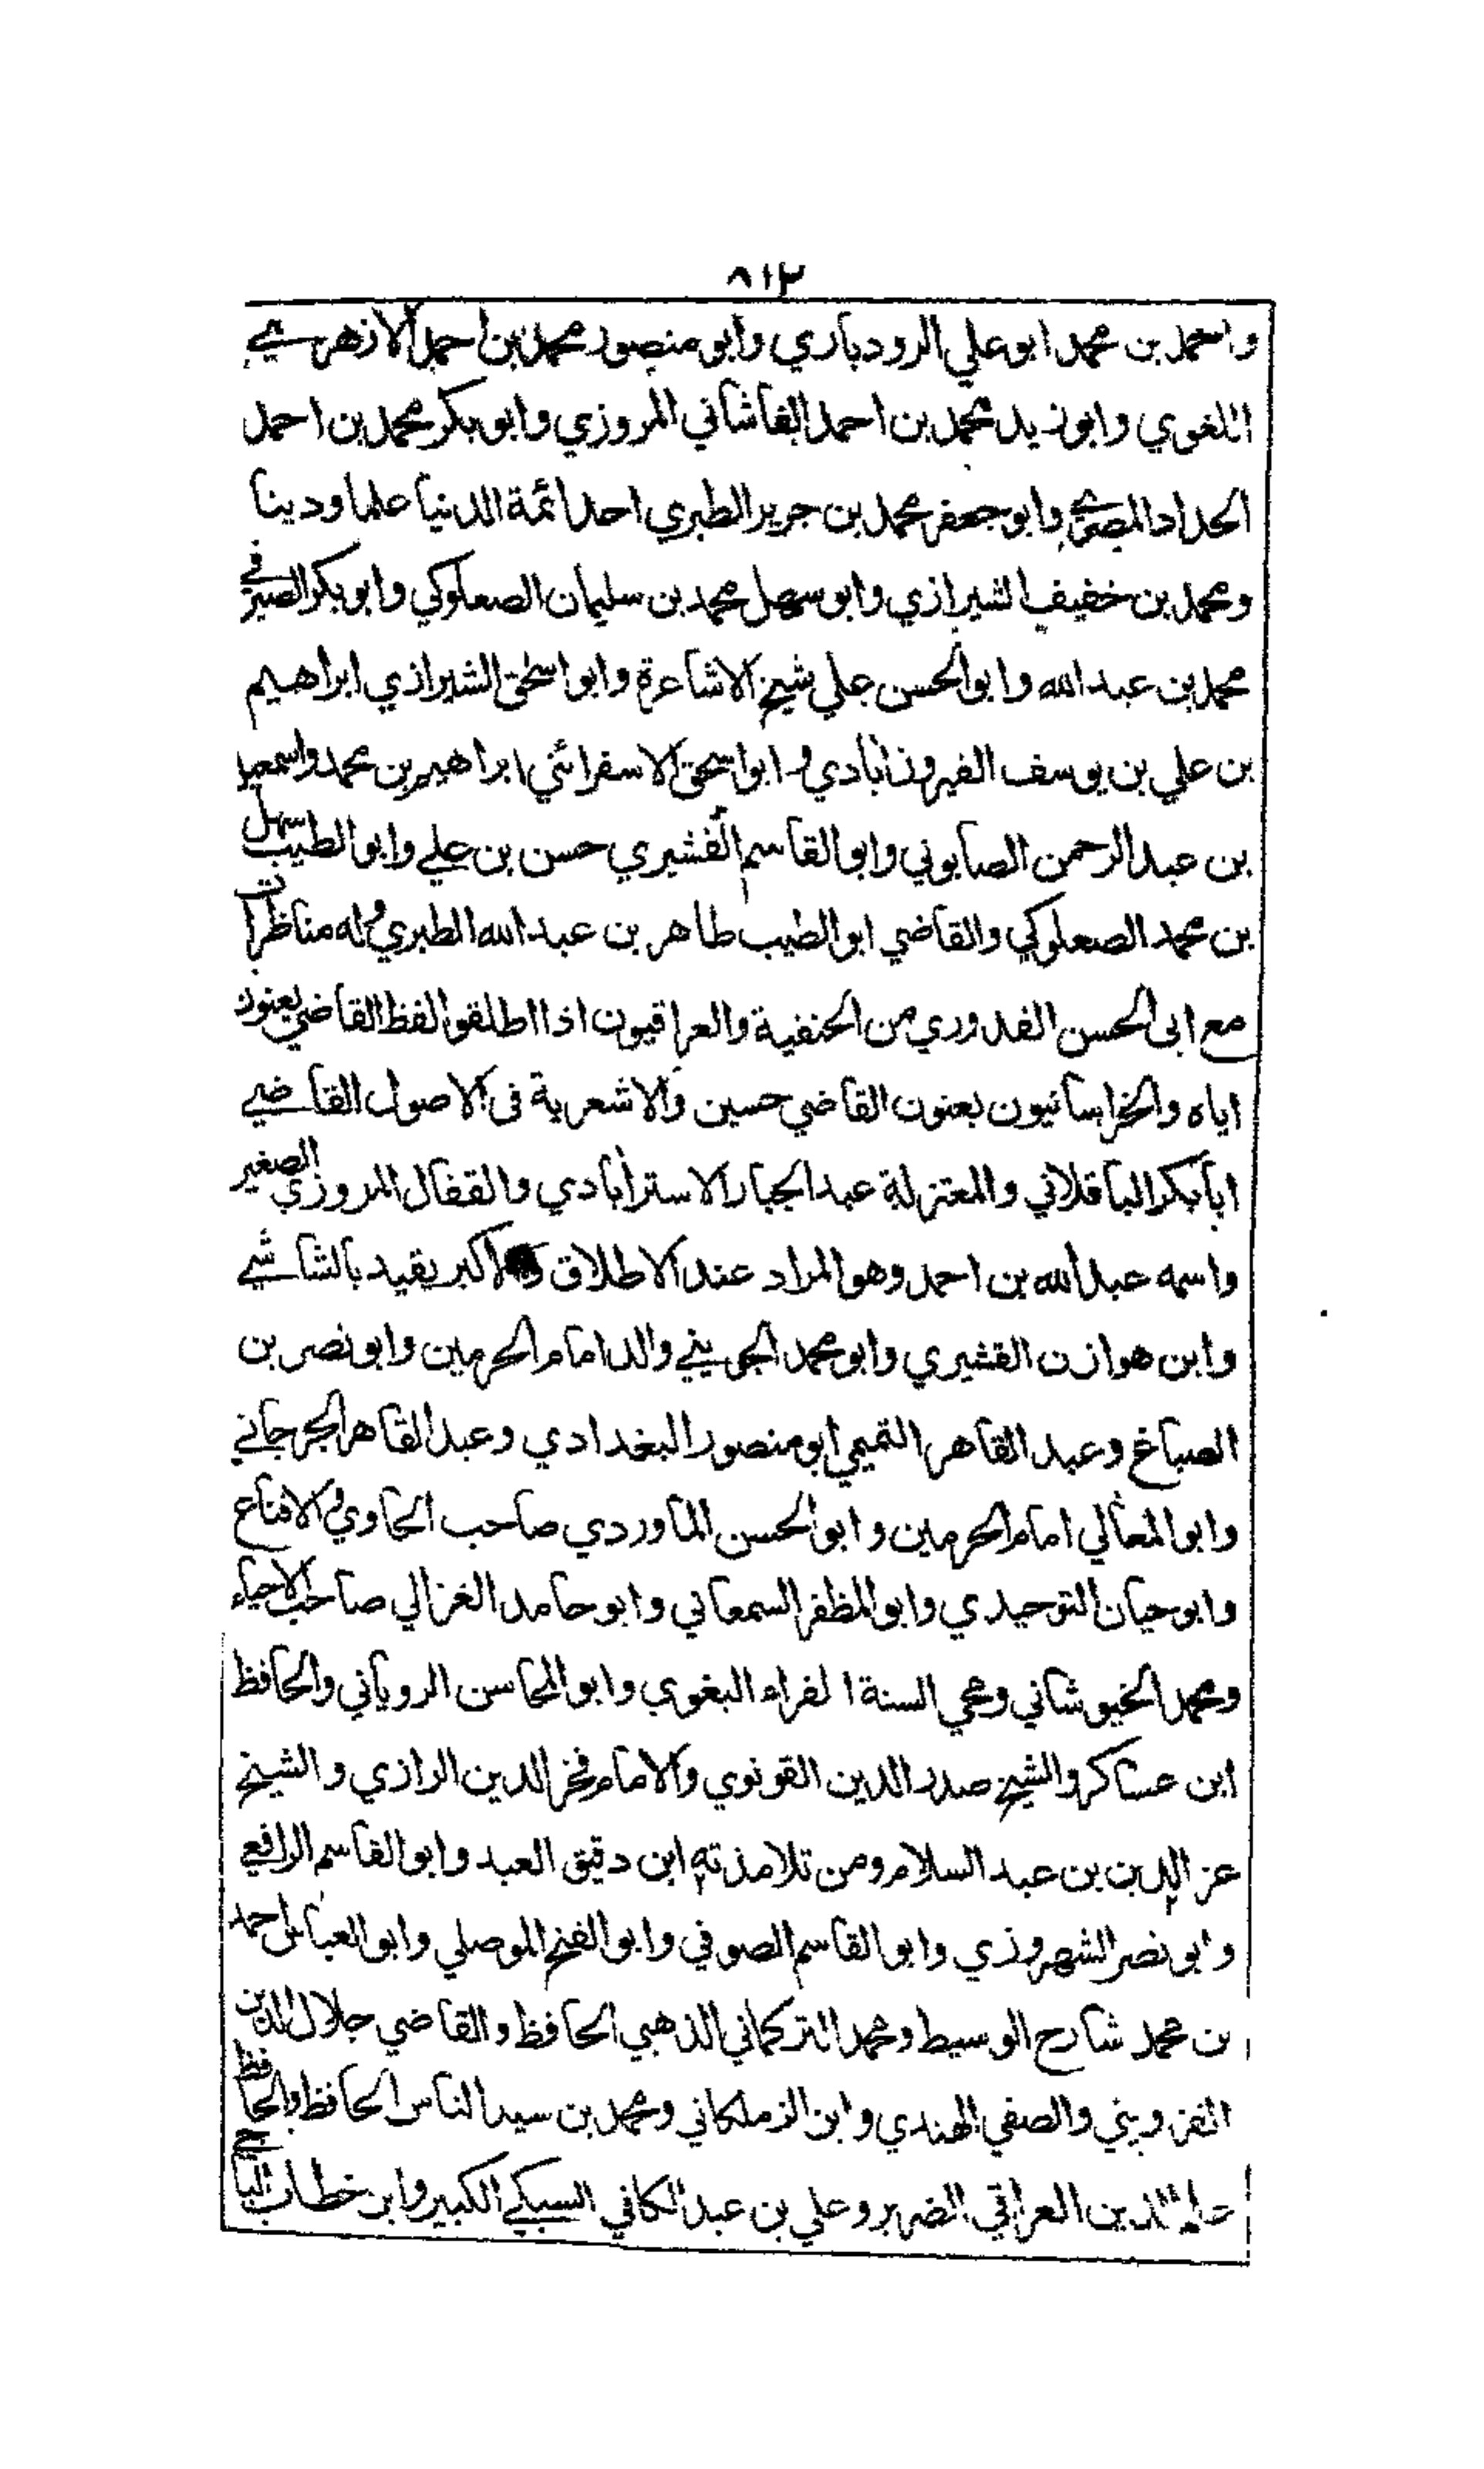 ٨١٢
واحمد بن محمد ابو علي الرودباري وابو منصور محمد بن احمد الازهري
اللغوي وابو زيد محمد بن احمد الفاشاني المروزي وابو بكر محمد بن احمد
الحداد المصري وابو جعفر محمد بن جرير الطبري احد ائمة الدنيا علما ودينا
ومحمد بن خفيف الشيرازي وابو سهل محمد بن سليمان الصعلوكي وابو بكر الصيرفي
محمد بن عبد الله وابو الحسن علي شيخ الاشاعرة وابو اسحٰق الشيرازي ابراهيم
بن علي بن يوسف الفيروزابادي وابو اسحق الاسفرائني ابراهيم بن محمد واسمعيل
بن عبد الرحمن الصابوني وابو القاسم القشيري حسن بن علي وابو الطيب سهل
بن محمد الصعلوكي والقاضي ابو الطيب طاهر بن عبد الله الطبري وله مناظرات
مع ابى الحسن القدوري من الحنفية والعراقيون اذا اطلقوا لفظ القاضي يعنون
اياه والخراسانيون يعنون القاضي حسين والاشعرية فى الاصول القاضي
ابا بكر الباقلاني والمعتزلة عبد الجبار الاسترابادي والقفال المروزي الصغير
واسمه عبد الله بن احمد وهو المراد عند الاطلاق والاكبر يقيد بالشاشي
وابن هوازن القشيري وابو محمد الجويني والد امام الحرمين وابو نصر بن
الصباغ وعبد القاهر التميمي ابو منصور البغدادي وعبد القاهر الجرجاني
وابو المعالي امام الحرمين وابو الحسن الماوردي صاحب الحاوي والاقناع
وابو حيان التوحيدي وابو المظفر السمعاني وابو حامد الغزالي صاحب الاحياء
ومحمد الخبوشاني ومحي السنة الفراء البغوي وابو المحاسن الروياني والحافظ
ابن عساكر والشيخ صدر الدين القونوي والامام فخر الدين الرازي والشيخ
عز الدين بن عبد السلام ومن تلامذته ابن دقيق العيد وابو القاسم الرافعي
وابو نصر الشهروزي وابو القاسم الصوفي وابو الفتح الموصلي وابو العباس احمد
بن محمد شارح الوسيط ومحمد التركماني الذهبي الحافظ والقاضي جلال الدين
القزويني والصفي الهندي وابن الزملكاني ومحمد بن سيد الناس الحافظ والحافظ
الدين العراقي الضرير وعلي بن عبد الكافي السبكي الكبير وابن خطاب الباجي